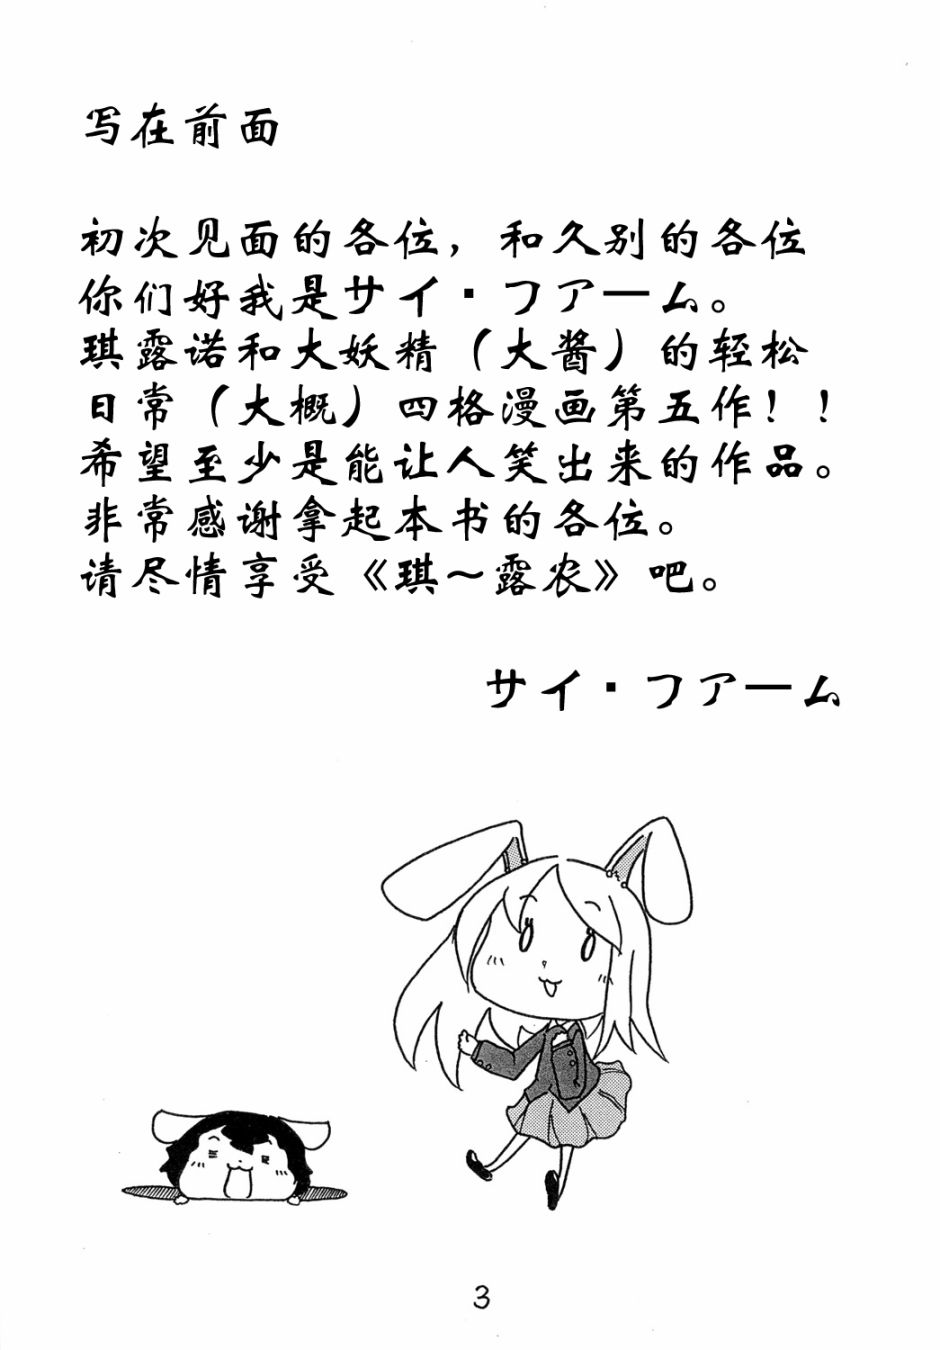 写在前面
初次见面的各位，和久别的各位
你们好我是サイ·ファーム。
琪露诺和大妖精（大酱）的轻松
日常（大概）四格漫画第五作！！
希望至少是能让人笑出来的作品。
非常感谢拿起本书的各位。
请尽情享受《琪～露农》吧。
サイ·ファーム
3